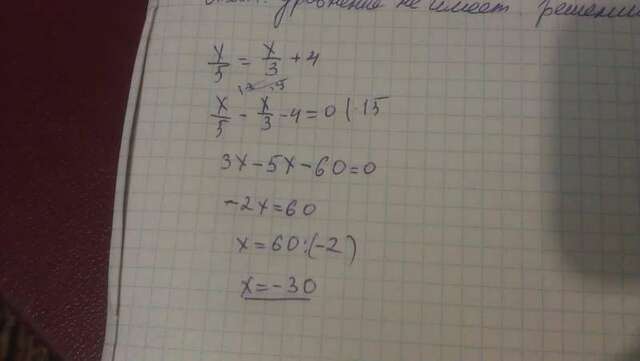 уравнение не имеет решений
x/5 = x/3 + 4
x/5 - x/3 - 4 = 0 | ·15
3x - 5x - 60 = 0
-2x = 60
x = 60 : (-2)
x = -30